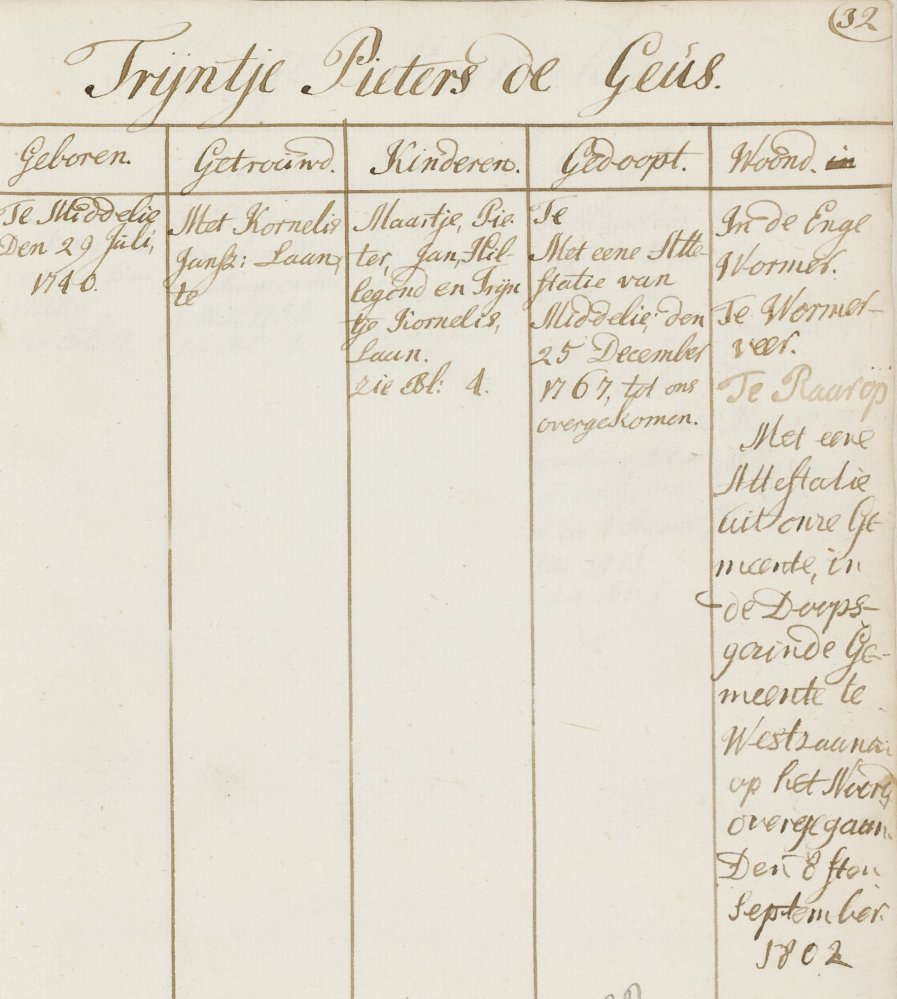 32
Trijntje Pieters de Geus.
Geboren.
Getrouwd.
Kinderen.
Gedoopt.
Woond. in
Te Middelie
Den 29 Juli,
1740.
Met Kornelis
Jansz: Laan,
te
Maartje, Pie
ter, Jan, Hil-
legond en Trijn
tje Kornelis,
Laan.
zie Bl: 4.
Te
Met eene Atte-
statie van
Middelie, den
25 December
1767, tot ons
overgekomen.
In de Enge
Wormer.
Te Wormer-
veer.
Te Raarop
Met eene
Attestatie
uit onze Ge
meente, in
de Doops-
gezinde Ge-
meente te
Westzaanen
op het Noord
overgegaan
Den 8sten
September
1802